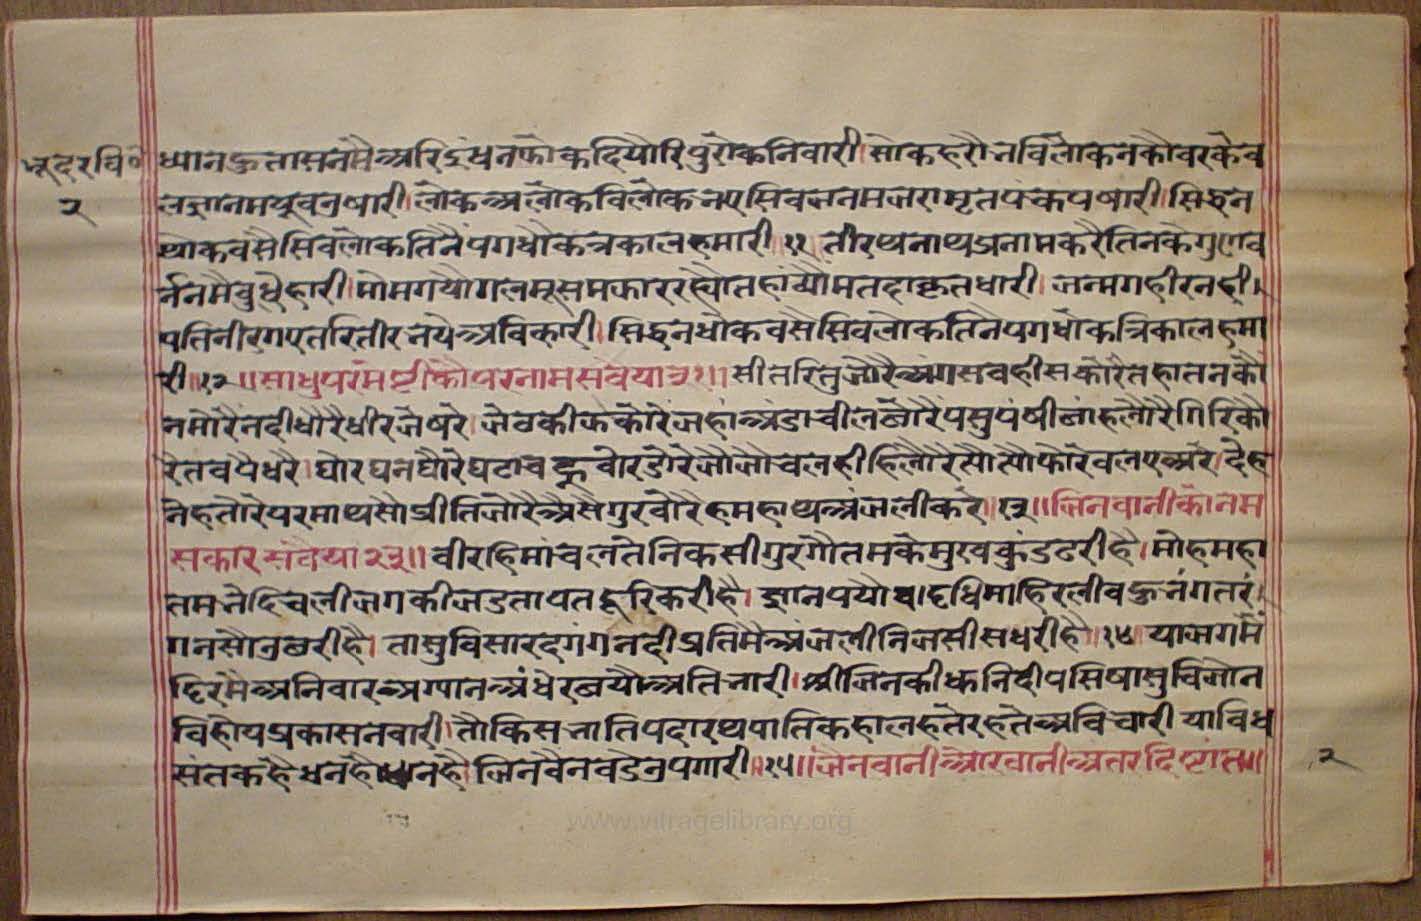 भूदरवि॰
२
ध्यानहुतासनमैअरिइंधनझोकदियौरिपुरोकनिवारी।सोकहरौभविलोकनकौवरकेव
लज्ञानमयूषउघारी।लोकअलोकविलोकभएसिवजनमजरामृतपंकपषारी।सिद्धन
थोकवसैसिवलोकतिनैपगधोकत्रकालहमारी॥११॥तीरथनाथप्रनामकरैतिनकेगुणव
र्ननमैबुधिहारी।मोमगयौगलमूसमझाररह्यौतहांव्योमतदाकृतधारी।जन्मगहीरनदी।
पतिनीरगएतरितीरभयेअविकारी।सिद्धनथोकवसैसिवलोकतिनैपगधोकत्रिकालहमा
री॥१२॥साधुपरमेष्टीकौपरनामसवैया३१॥सीतरितुजोरैअंगसबहीसकोरैतहातनकौ
नमोरैनदीधौरैधीरजेषरे।जेठकीझकोरेजहांअंडाचीलछोरैपसुपंषीछांहलोरैगिरिको
रेतवपैधरे।घोरघनघोरैघटाचहुवोरडोरैजौजौचलहीहिलोरैत्सौत्सौफोरैबलएअरे।देह
नेहतोरेपरमाथसौप्रीतिजोरैअैसैगुरवोरैहमहाथअंजलीकरे॥१३॥जिनवानीकौनम
सकारसवैया२३॥वीरहिमांचलतेनिकसीगुरगौतमकेमुखकुंडढरीहै।मोहमहा
तमभेदिचलीजगकीजडतापतदूरिकरीहै।ज्ञानपयोदधिमाहिरलीवहुभंगतरं।
गनसौउछरीहै।तासुविसारदगंगनदीप्रतिमैअंजलीनिजसीसधरीहै॥१४॥याजगमं
दिरमैअनिवारअग्यानअंधेरछयौअतिभारी।श्रीजिनकीधुनिदीपसिषासुविजोन
विहोयप्रकासनवारी।तौकिसभातिपदारथपातिकहालहतेरहतेअविचारीयाविध
संतकहैधनहैधनहैजिनवैनवडेउपगारी॥१५॥जैनवानीओरवानीअंतरदिष्टांत॥
२
www.vitragelibrary.org